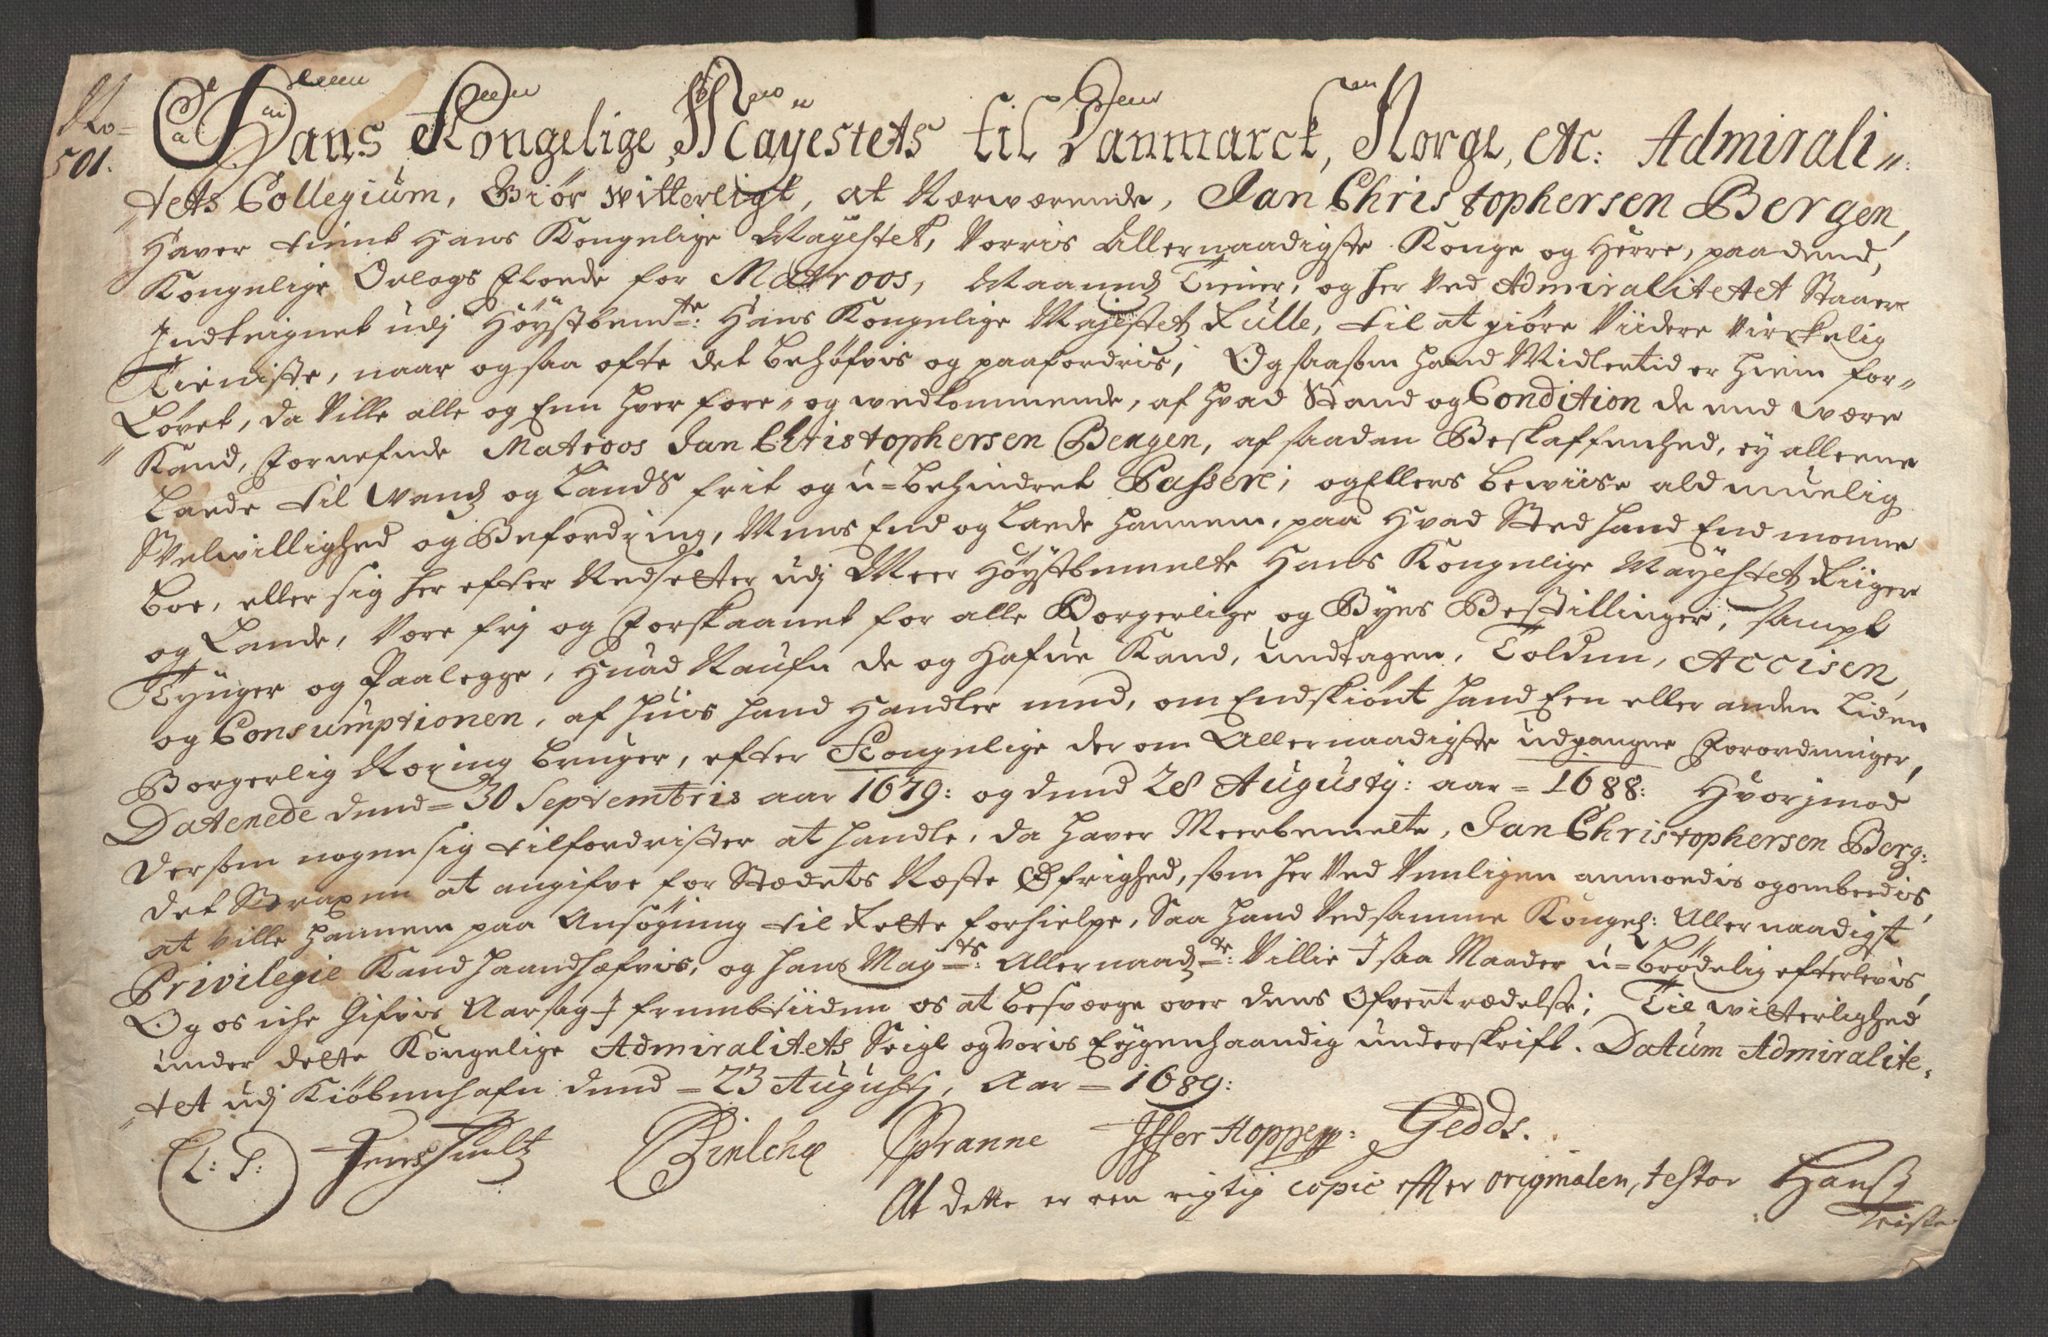 No
501.
Hans Kongelige Mayestets til Danmarck, Norge, etc: Admirali„
„tets Collegium, Giør witterligt, at Nærwærende, Jan Christophersen Bergen,
Haver tient Hans Kongelige Mayestet, Vorris Allernaadigste Konge og Herre, paa dend,
Kongelige Orlogs Floede for Matroos, Maanedz Tiener, og her Ved Admiralitetet Staaer
Indteignet udj Høystbemte: Hans Kongelige Majestetz Rulle, til at giøre Viidere Virckelig
Tieniste, naar og saa ofte det behøfvis og paafordris; Og saasom hand Midlertid er hiem for„
Løvet, da Ville alle og Enn hver fore„ og wedkommende, af hvad Stand og Condition de end være
„Kand, Fornefnde Matroos Jan Christophersen Bergen, af saadan Beskaffenhed, ey alleene
Laede til Vandz og Lands frit og u=behindret Passere; og Ellers bewiise ald muelig
Velwillighed og Befordring, Mens End og Laede hannem, paa Hvad Sted hand End monne
boe, eller sig her efter Nedsetter udj Meer Høystbemelte Hans Kongelige Mayestetz Riiger
og Lande, Være frj og Forskaanet for alle Borgerlige og Byens Bestillinger, sampt
Tynger og Paalegge, Huad Naufn de og Hafue Kand, undtagen, Tolden, Accisen,
og Consumptionen, af huis hand Handler med, om Endskiønt hand Een eller anden Liden
Borgerlig Næring bruger, efter Kongelige der om Allernaadigste udgangne Forordninger,
Daterede dend = 30 Septembris aar 1679: og dend 28 Augusty: aar = 1688: Hvorjmod
dersom nogen sig tilfordrister at handle, da haver Meerbemelte, Jan Christophersen Berg:
det Straxen at angifve for Stædets Næste Øfrighed, som her Ved Venligen anmoedis og ombeedis,
at Ville hannem paa Ansøgning til Rette forhielpe, Saa hand Ved samme Kongel: Allernaadigst
Privilegie Kand haandhæfvis, og hans Mayts: Allernaadste: Villie J saa Maader u=brødelig efterlevis,
Og os iche Gifvis Aarsag J fremtiiden os at besværge over dens Ofvertrædelse; Til witterlighed
under dette Kongelige Admiralitets Seigl og Voris Eygenhaandig underskrift. Datum Admiralite„
„tet udj Kiøbenhafn dend = 23 Augustj, Aar = 1689:
L: S: Bielche Spranne Iffer Hoppe Gedds.
At dette er een rigtig copie effter originalen, testor Hans